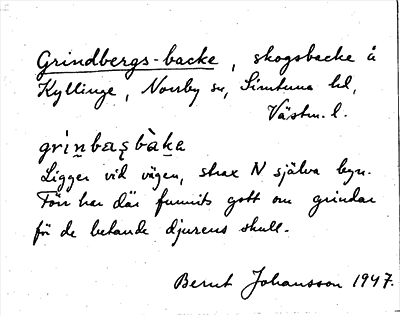 Grindbergs-backe, skogsbacke å
Kyllinge, Norrby sn, Simtuna hd,
Västm. l.
grìn̠bas̨bàk̠a
Ligger vid vägen, strax N själva byn.
Förr har där funnits gott om grindar
för de betande djurens skull.
Bernt Johansson 1947.